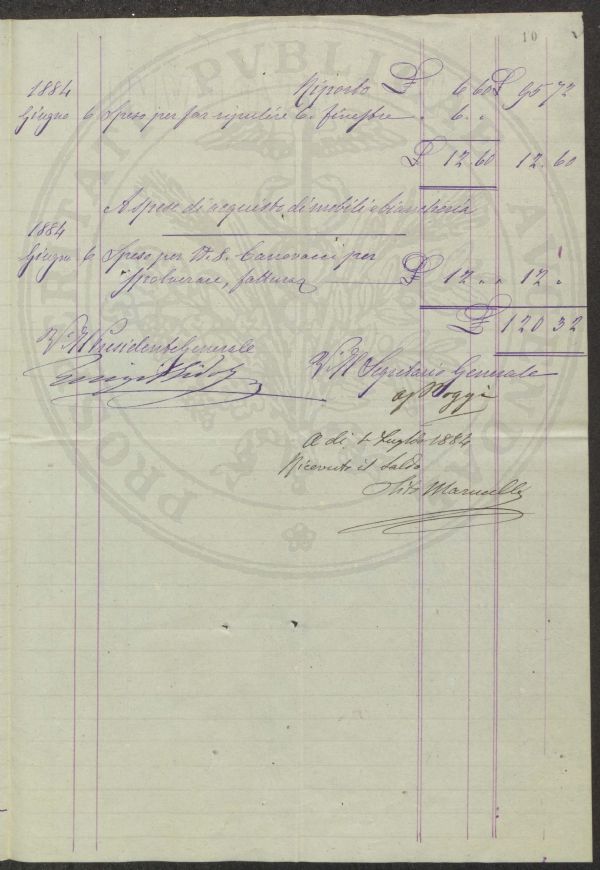 10
1884 Riporto £ 6.60 £ 95 72
Giugno 6 Speso per far ripulire 6. finestre . 6. .
£ 12.60 12.60
A spese di acquisto di mobili e biancheria
1884
Giugno 6 Speso per N. 8. Canovacci per
spolverare, fattura £ 12. . 12 .
£ 120 32
V° Il Presidente Generale
V° Il Segretario Generale
Poggi
A di 1 Luglio 1884
Ricevuto il saldo